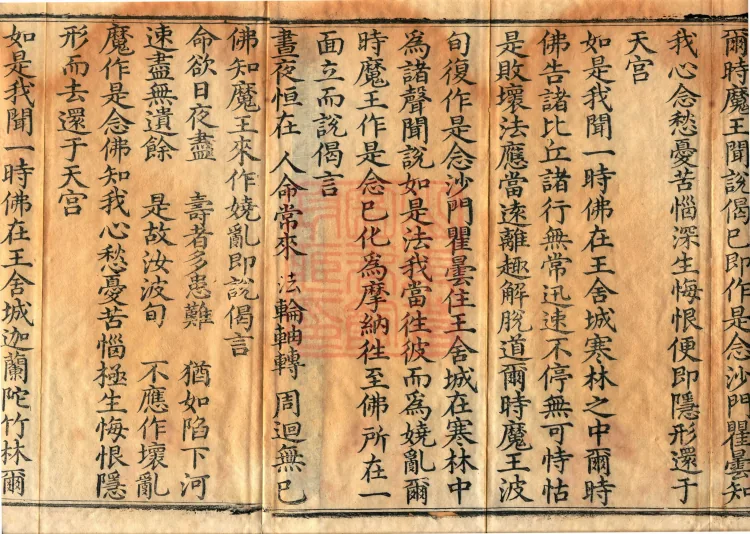 爾時魔王聞說偈已即作是念沙門瞿曇知
我心念愁憂苦惱深生悔恨便即隱形還于
天宮
如是我聞一時佛在王舍城寒林之中爾時
佛告諸比丘諸行無常迅速不停無可恃怙
是敗壞法應當遠離趣解脫道爾時魔王波
旬復作是念沙門瞿曇住王舍城在寒林中
為諸聲聞說如是法我當往彼而為嬈亂爾
時魔王作是念已化為摩納往至佛所在一
面立而說偈言
晝夜恒在 人命常來 法輪軸轉 周迴無已
佛知魔王來作嬈亂即說偈言
命欲日夜盡 壽者多患難 猶如陷下河
速盡無遺餘 是故汝波旬 不應作壞亂
魔作是念佛知我心愁憂苦惱極生悔恨隱
形而去還于天宮
如是我聞一時佛在王舍城迦蘭陀竹林爾